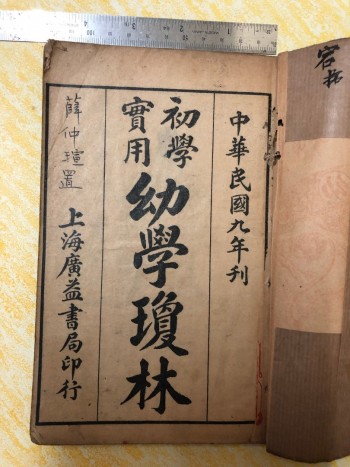 中華民國九年刊
初學
實用
幼學瓊林
上海廣益書局印行
薛仲瑄置